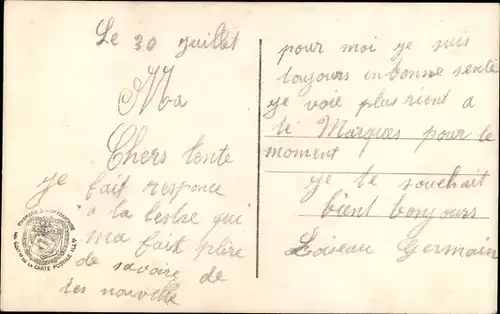 Le 30 Juillet
Ma
Chers tente
je fait responce
a ta lestre qui
ma fait plére
de savoire de
tes nouvelle
pour moi je suis
toujours in bonne senté
je voie plus rient a
te Marques pour le
moment
je te souchait
bient bonjours
Loiseau Germain
DE LA CARTE POSTALE